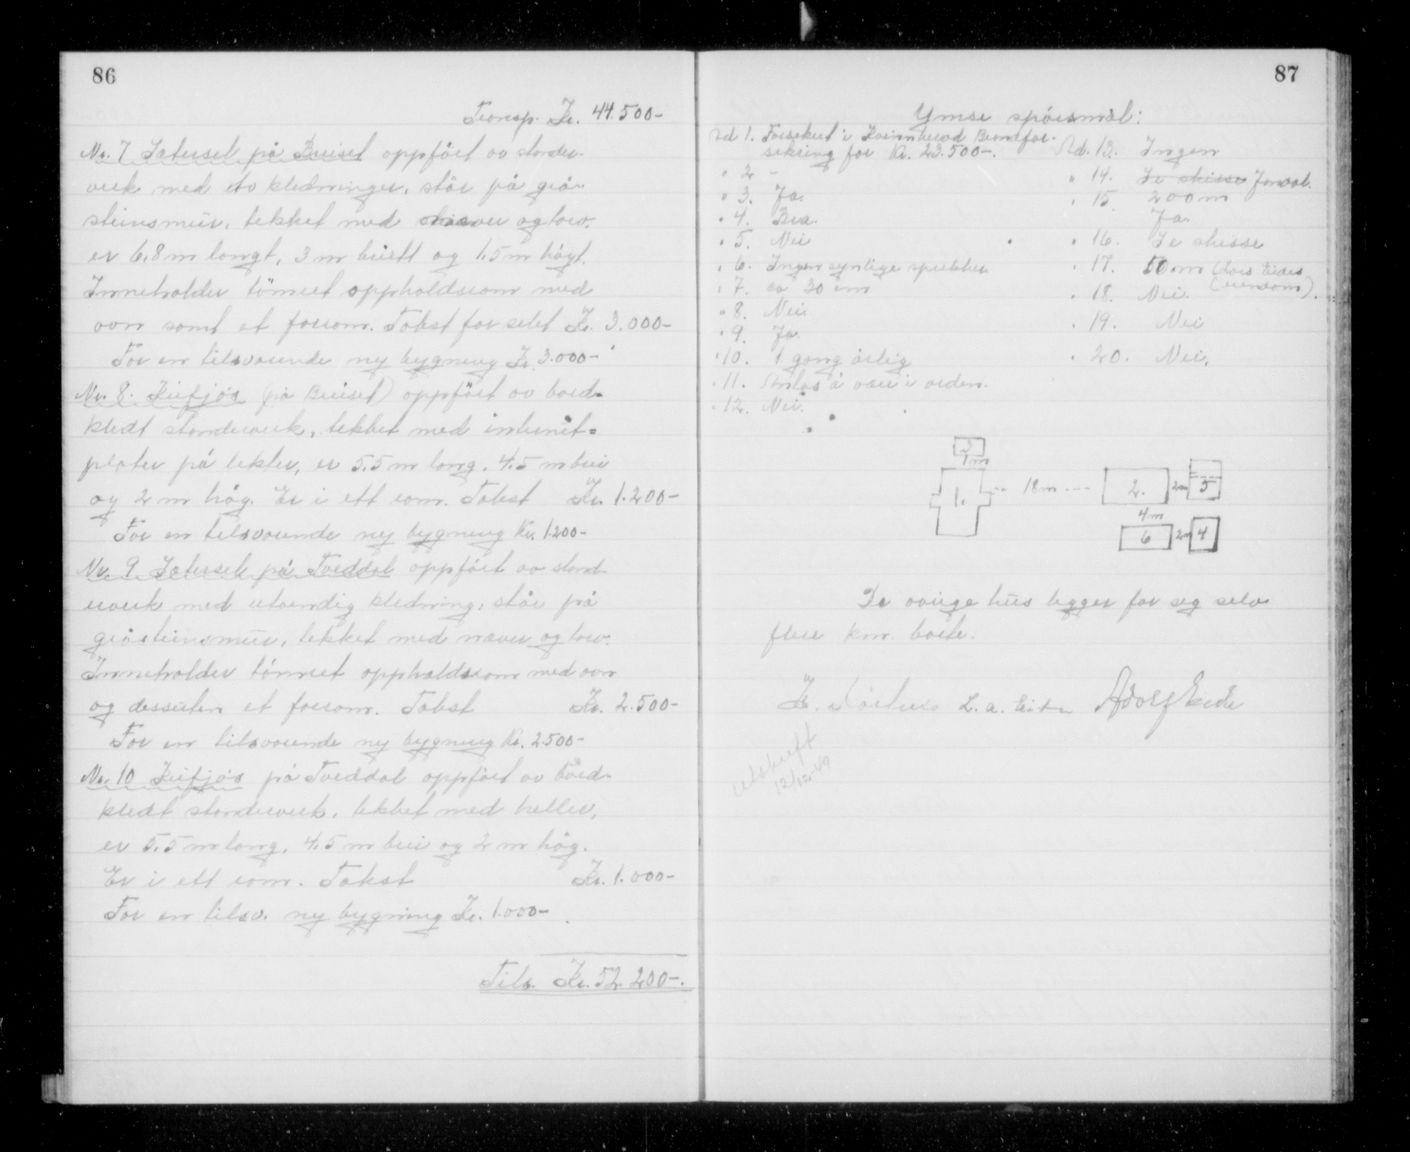 86
Transp. Kr. 44.500-
No. 7 Sætersel på Bruiset oppført av stender-
verk med to kledninger, står på grå-
steinsmur, tekket med næver og torv.
er 6,8 m langt, 3 m breitt og 1,5 m høgt.
Inneholder tømret oppholdsrom med
ovn samt et forrom. Takst for selet Kr. 3.000-
For en tilsvarende ny bygning Kr. 3.000-
No. 8. Kufjøs (på Bruiset) oppført av bord-
kledt stenderverk, tekket med internit-
plater på lekter, er 5.5 m lang. 4.5 m brei
og 2 m høg. Er i ett rom. Takst Kr. 1.200-
For en tilsvarende ny bygning Kr. 1200-
No. 9 Sætersel på Tveddal oppført av stend-
erverk med utvendig kledning, står på
gråsteinsmur, tekket med næver og torv.
Inneholder tømret oppholdsrom med ovn
og dessuten et forrom. Takst Kr. 2.500-
For en tilsvarende ny bygning Kr. 2500-
No. 10 Kufjøs på Tveddal oppført av bord-
kledt stenderverk, tekket med heller,
er 5.5 m lang, 4.5 m brei og 2 m høg.
Er i ett rom. Takst Kr. 1.000-
For en tilsv. ny bygning Kr. 1.000-
Tils. Kr. 52.200-.
87
Ymse spörsmål:
Ad 1. Forsikret i Brannfor-
sikring for Kr. 23.500-.
" 2 -
" 3. Ja.
" 4. Bra.
" 5. Nei
" 6. Ingen synlige sprekker
" 7. ca 20 cm
" 8. Nei
" 9. Ja.
" 10. 1 gang årlig
" 11. Antas å vær i orden.
" 12. Nei.
Ad. 13. Ingen
" 14. Se skisse
" 15. 200 m
Ja.
" 16. Se skisse
" 17. 50 m
" 18. Nei.
" 19. Nei
" 20. Nei.
3
7 m
1. 18 m 2. 2m 5
4 m
6 2m 4
De øvrige hus ligger for seg selv
flere km. borte.
L. A. Adolf Eide
utskrift
12/12-49